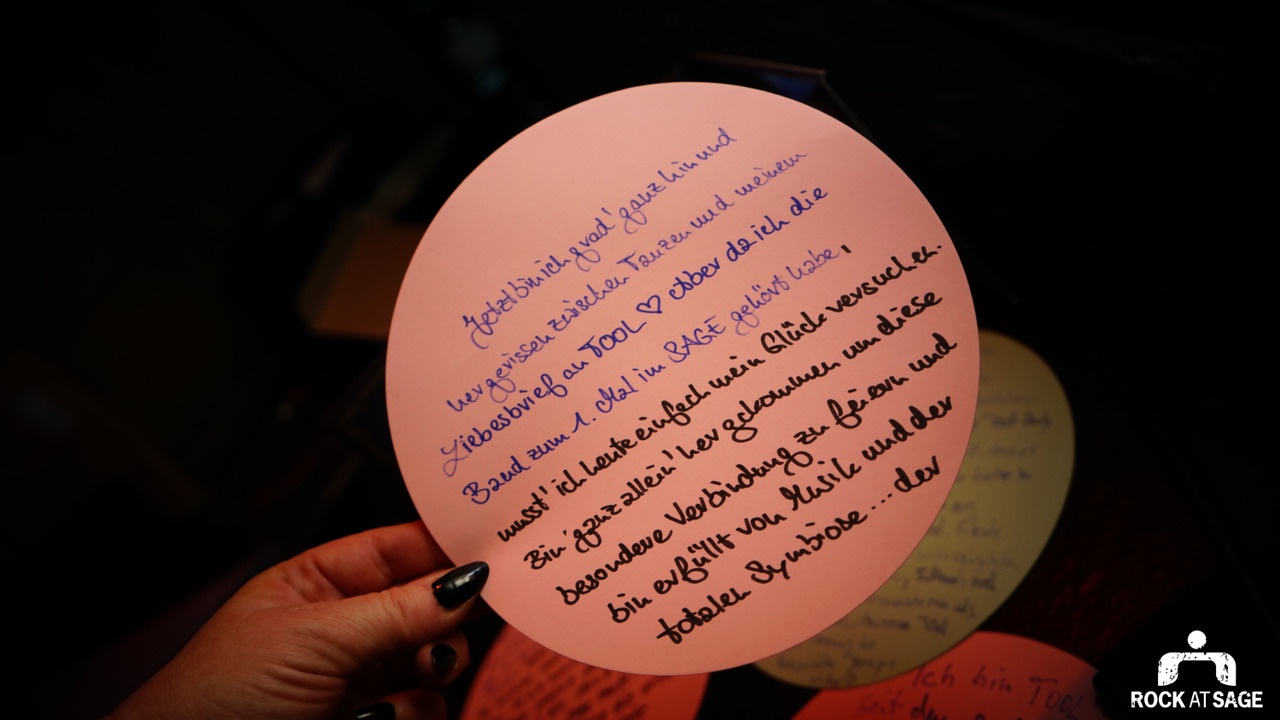 Jetzt bin ich grad' ganz hin und
hergerissen zwischen Tanzen und meinem
Liebesbrief an TOOL ♡ Aber da ich die
Band zum 1. Mal im SAGE gehört habe,
musst' ich heute einfach mein Glück versuchen.
Bin ganz allein' hergekommen um diese
besondere Verbindung zu feiern und
bin erfüllt von Musik und der
totalen Symbiose... der
Ich bin TOOL
seit dem
ROCK AT SAGE